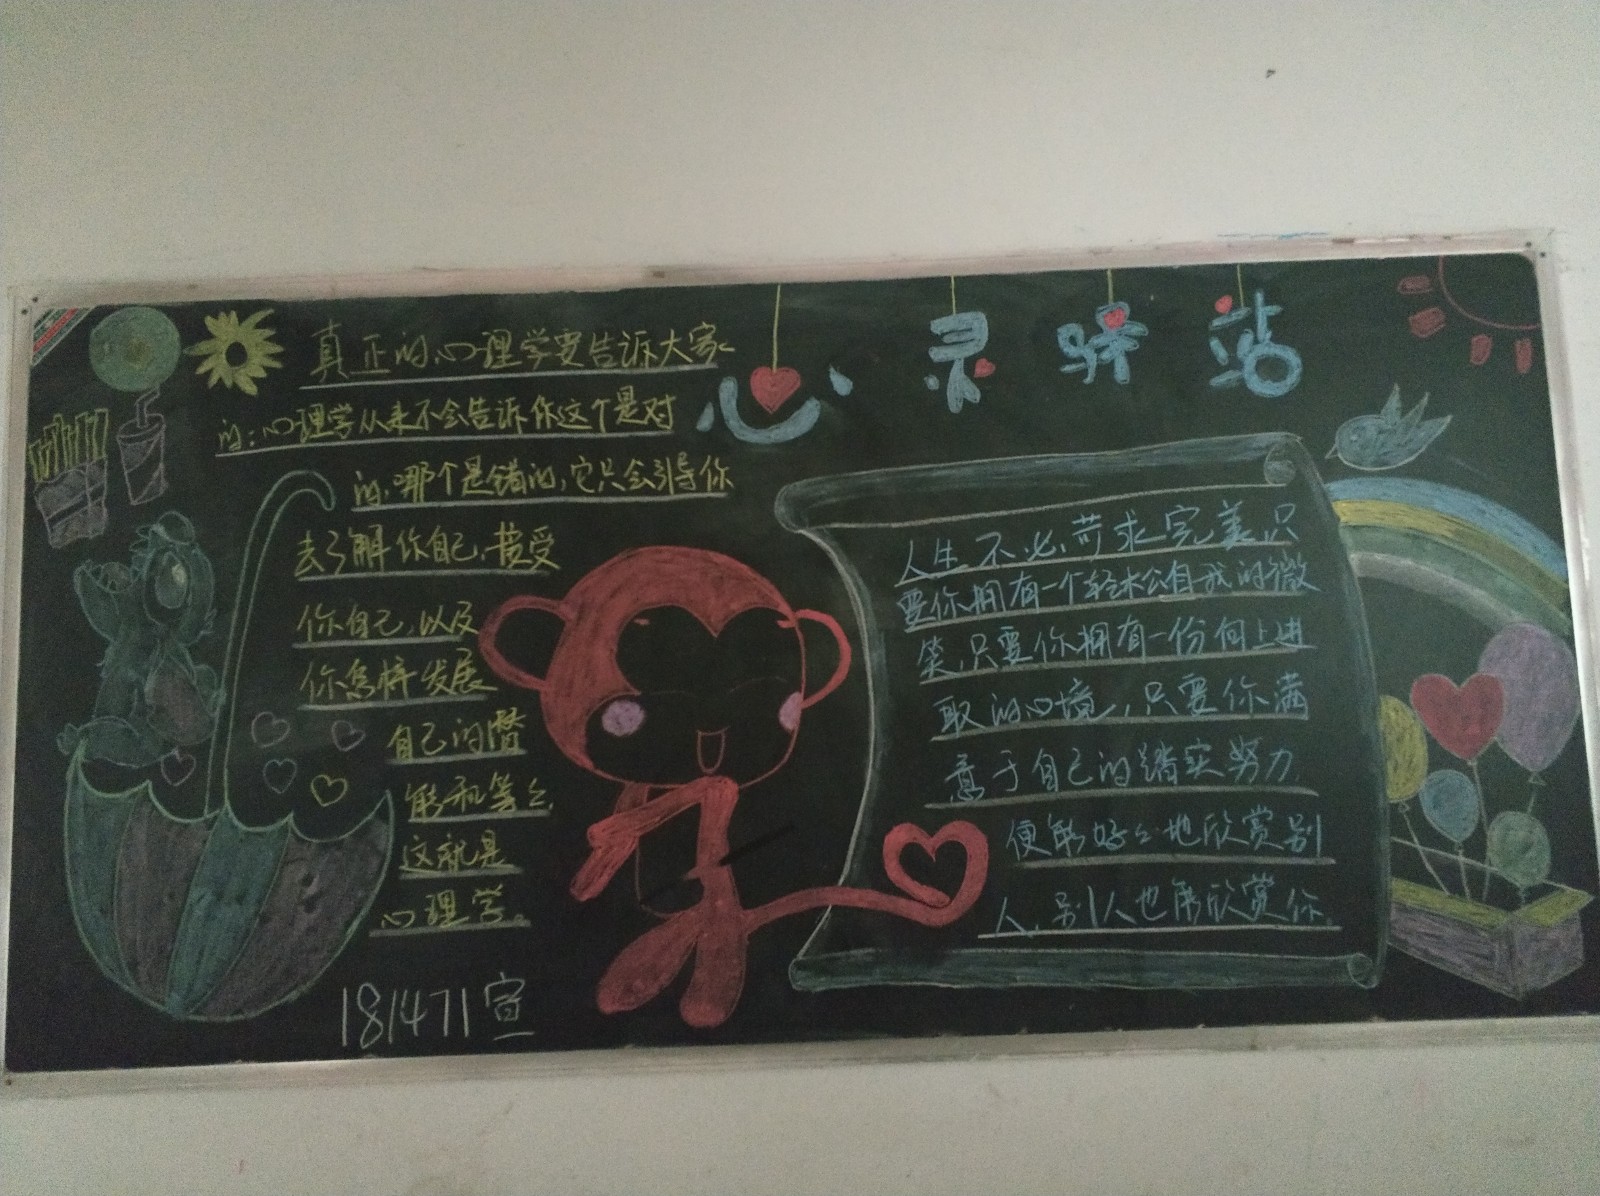 心灵驿站
真正的心理学要告诉大家
的:心理学从来不会告诉你这个是对
的,哪个是错的,它只会引导你
去了解你自己,接受
你自己,以及
你怎样发展
自己的潜
能和等等
这就是
心理学。
181471宣
人生不必苛求完美,只
要你拥有一个轻松自我的微
笑,只要你拥有一份向上进
取的心境,只要你满
意于自己的踏实努力
便能好好地欣赏别
人,别人也能欣赏你.